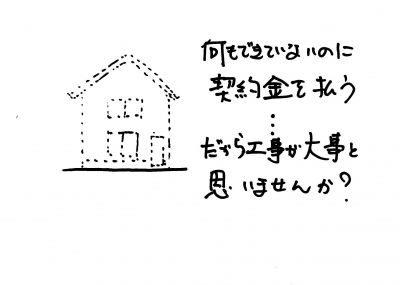 何もできていないのに
契約金を払う
⋮
だから工事が大事と
思いませんか?